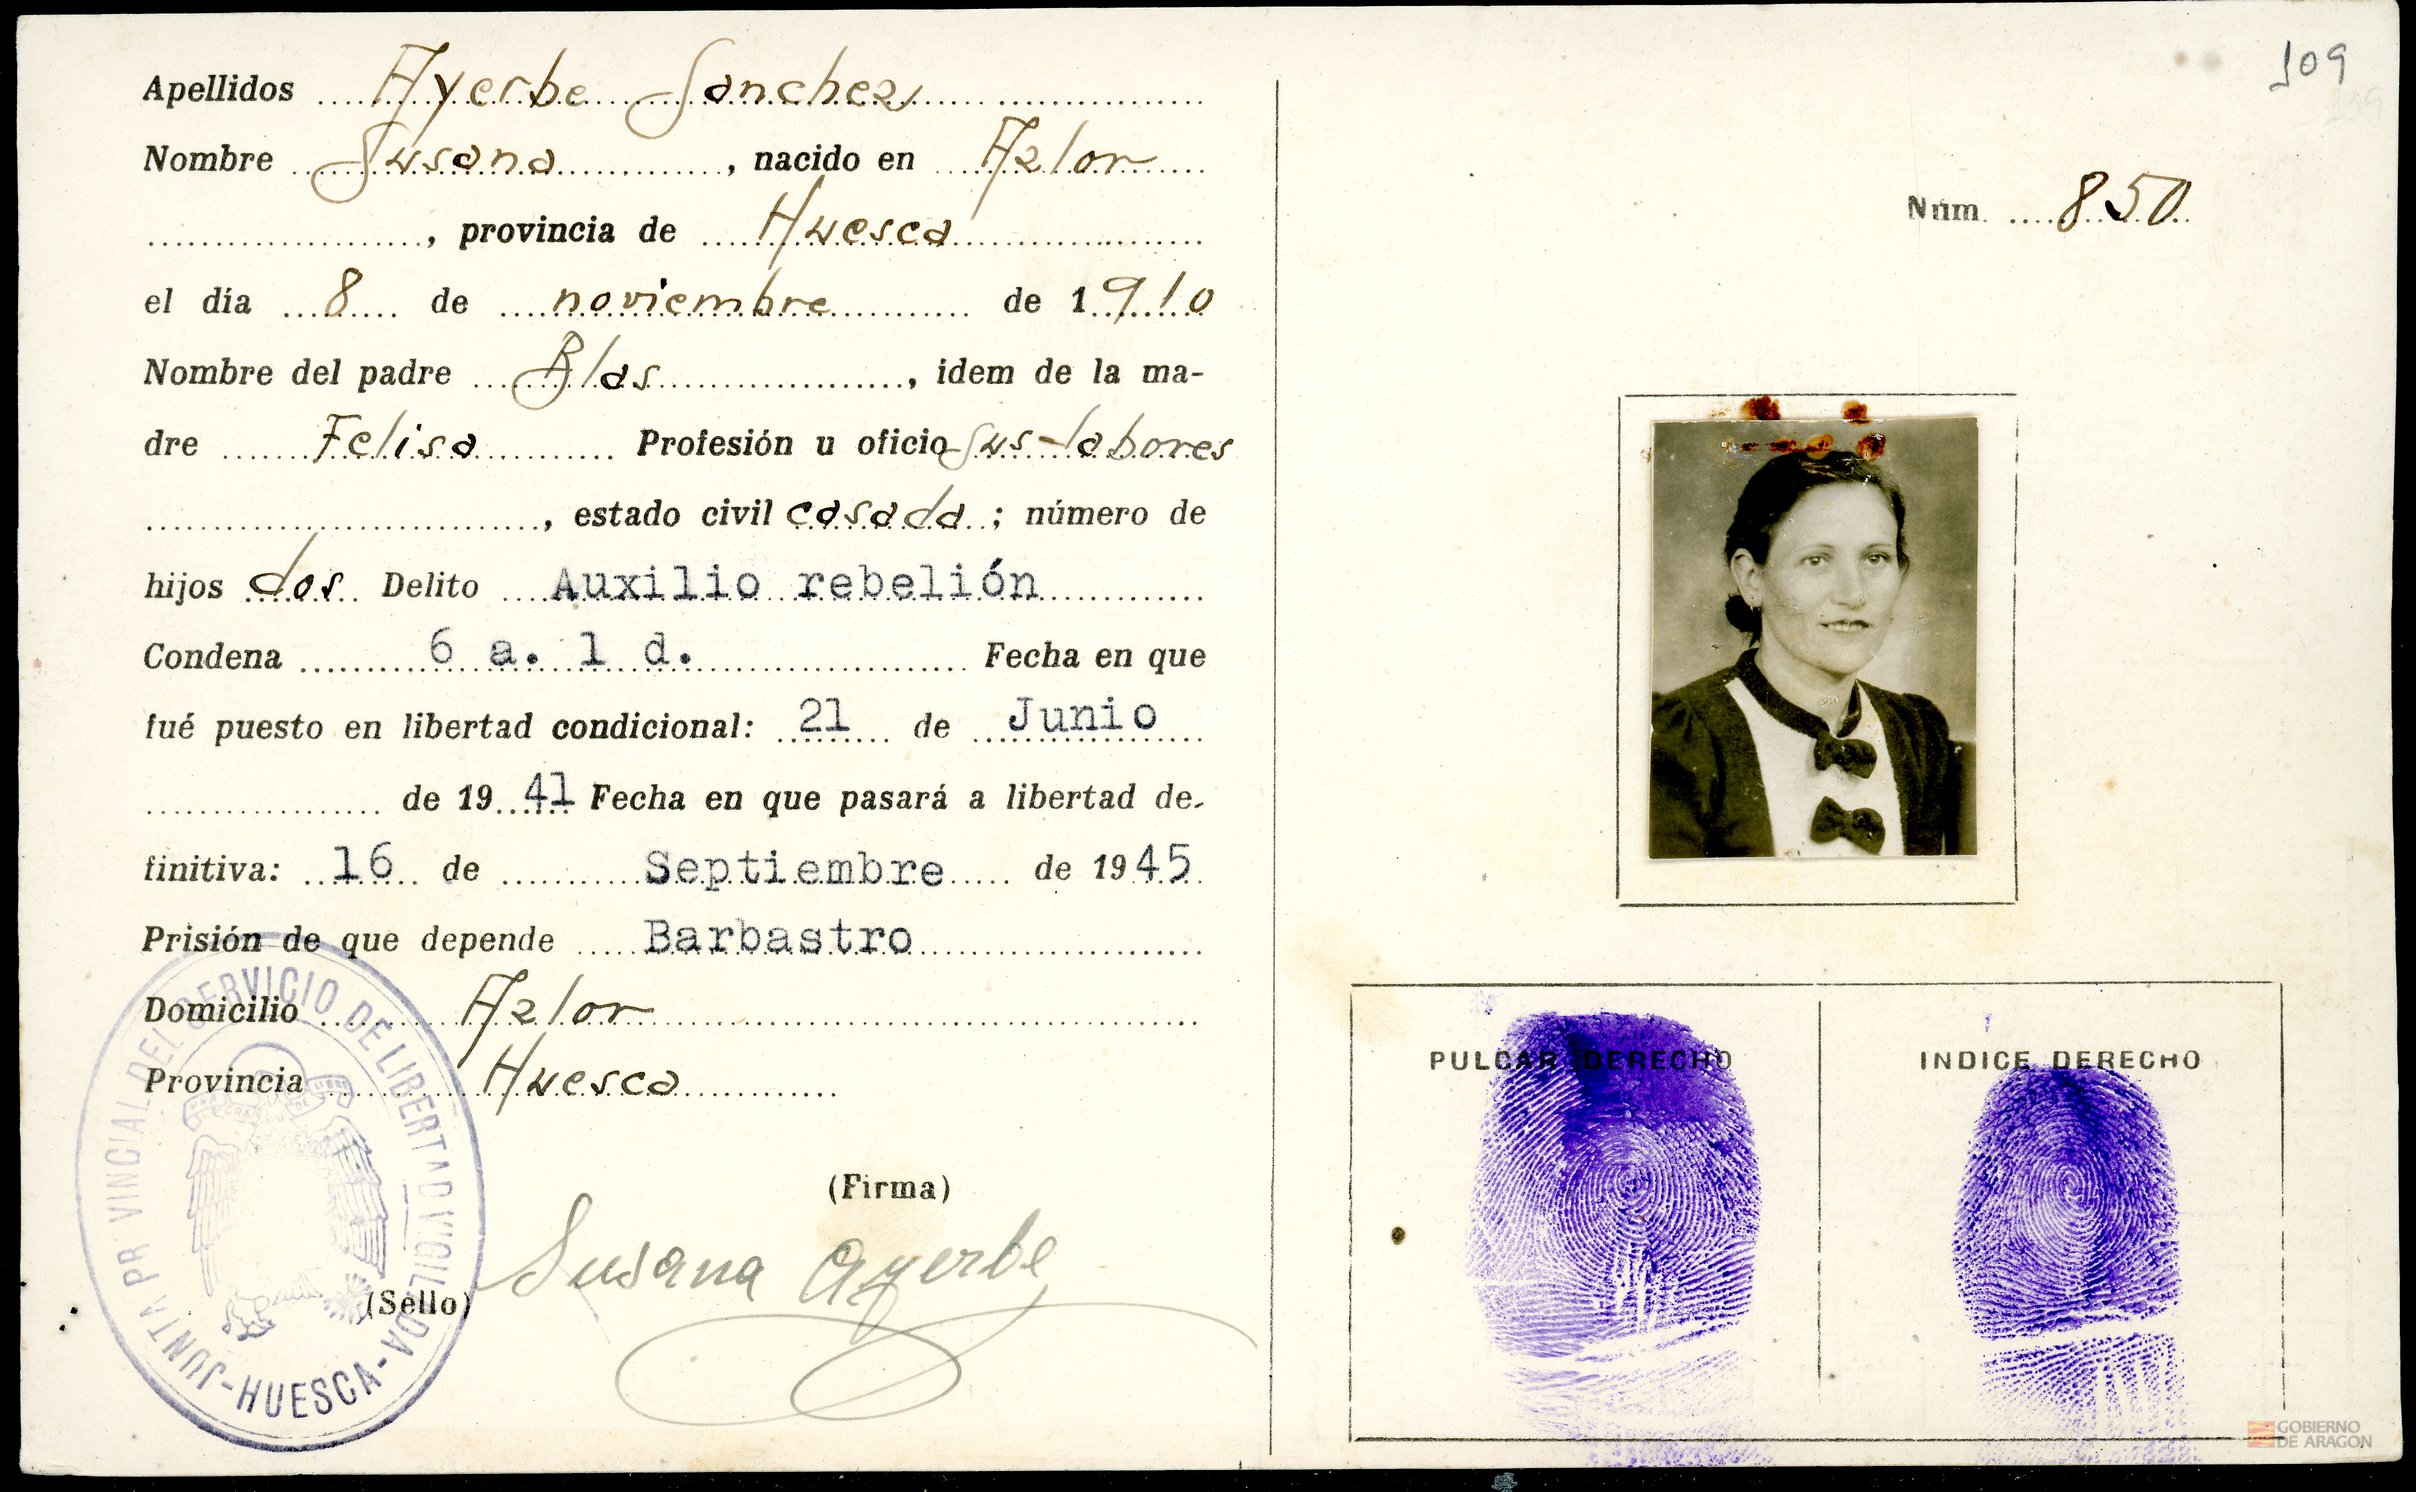 Apellidos Ayerbe Sanchez
Nombre Susana, nacido en Azlor
, provincia de Huesca
el día 8 de noviembre de 1910
Nombre del padre Blas, idem de la ma-
dre Felisa Profesión u oficio Sus-labores
, estado civil casada; número de
hijos dos Delito Auxilio rebelión
Condena 6 a. 1 d. Fecha en que
fué puesto en libertad condicional: 21 de Junio
de 1941 Fecha en que pasará a libertad de-
finitiva: 16 de Septiembre de 1945
Prisión de que depende Barbastro
Domicilio Azlor
Provincia Huesca
(Firma)
Susana Ayerbe
(Sello)
JUNTA PROVINCIAL DEL SERVICIO DE LIBERTAD VIGILADA
-HUESCA-
109
Núm. 850
PULGAR DERECHO
INDICE DERECHO
GOBIERNO
DE ARAGON